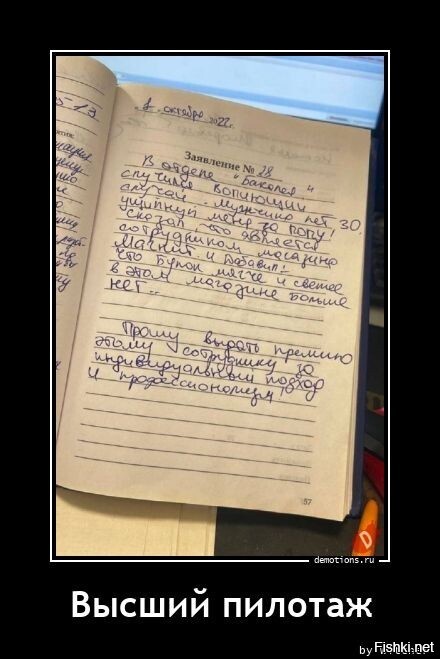 „1" октября 2022г.
Заявление № 28
В отделе "Бакалея"
случился вопиющий
случай. Мужчина лет 30,
ущипнул меня за попу!
сказал что является
сотрудником магазина
Магнит и добавил:
что булок мягче и свежее
в этом магазине больше
нет..
Прошу выдать премию
этому сотруднику за
индивидуальный подход
и профессионализм!
57
demotions.ru
Высший пилотаж
by
Fishki.net